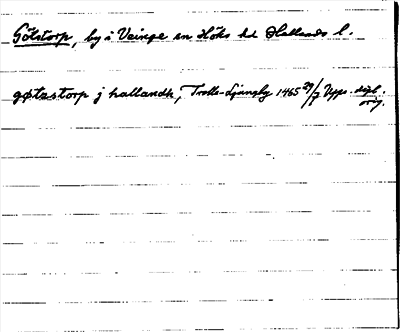 Götstorp, by i Veinge sn Höks hd Hallands l.
gøtzstorp j hallandh, Trolle-Ljungby 1465 29/7 Upps.
orig.